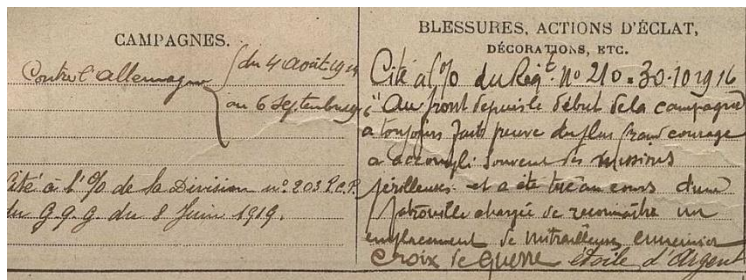 CAMPAGNES.
Contre l'allemagne du 4 Août 1914
au 6 Septembre
Cité à l'o/o de la Division n° 203 P.C.R.
du G.Q.G du 8 Juin 1919.
BLESSURES, ACTIONS D'ÉCLAT,
DÉCORATIONS, ETC.
Cité à l'o/o du Régt. N° 210 = 30-10 1916
"Au front depuis le début de la campagne
a toujours fait preuve du plus grand courage
a accompli souvent des missions
périlleuses et a été tué au cours d'une
patrouille chargée de reconnaître un
emplacement de mitrailleuses ennemies
Croix de Guerre étoile d'Argent